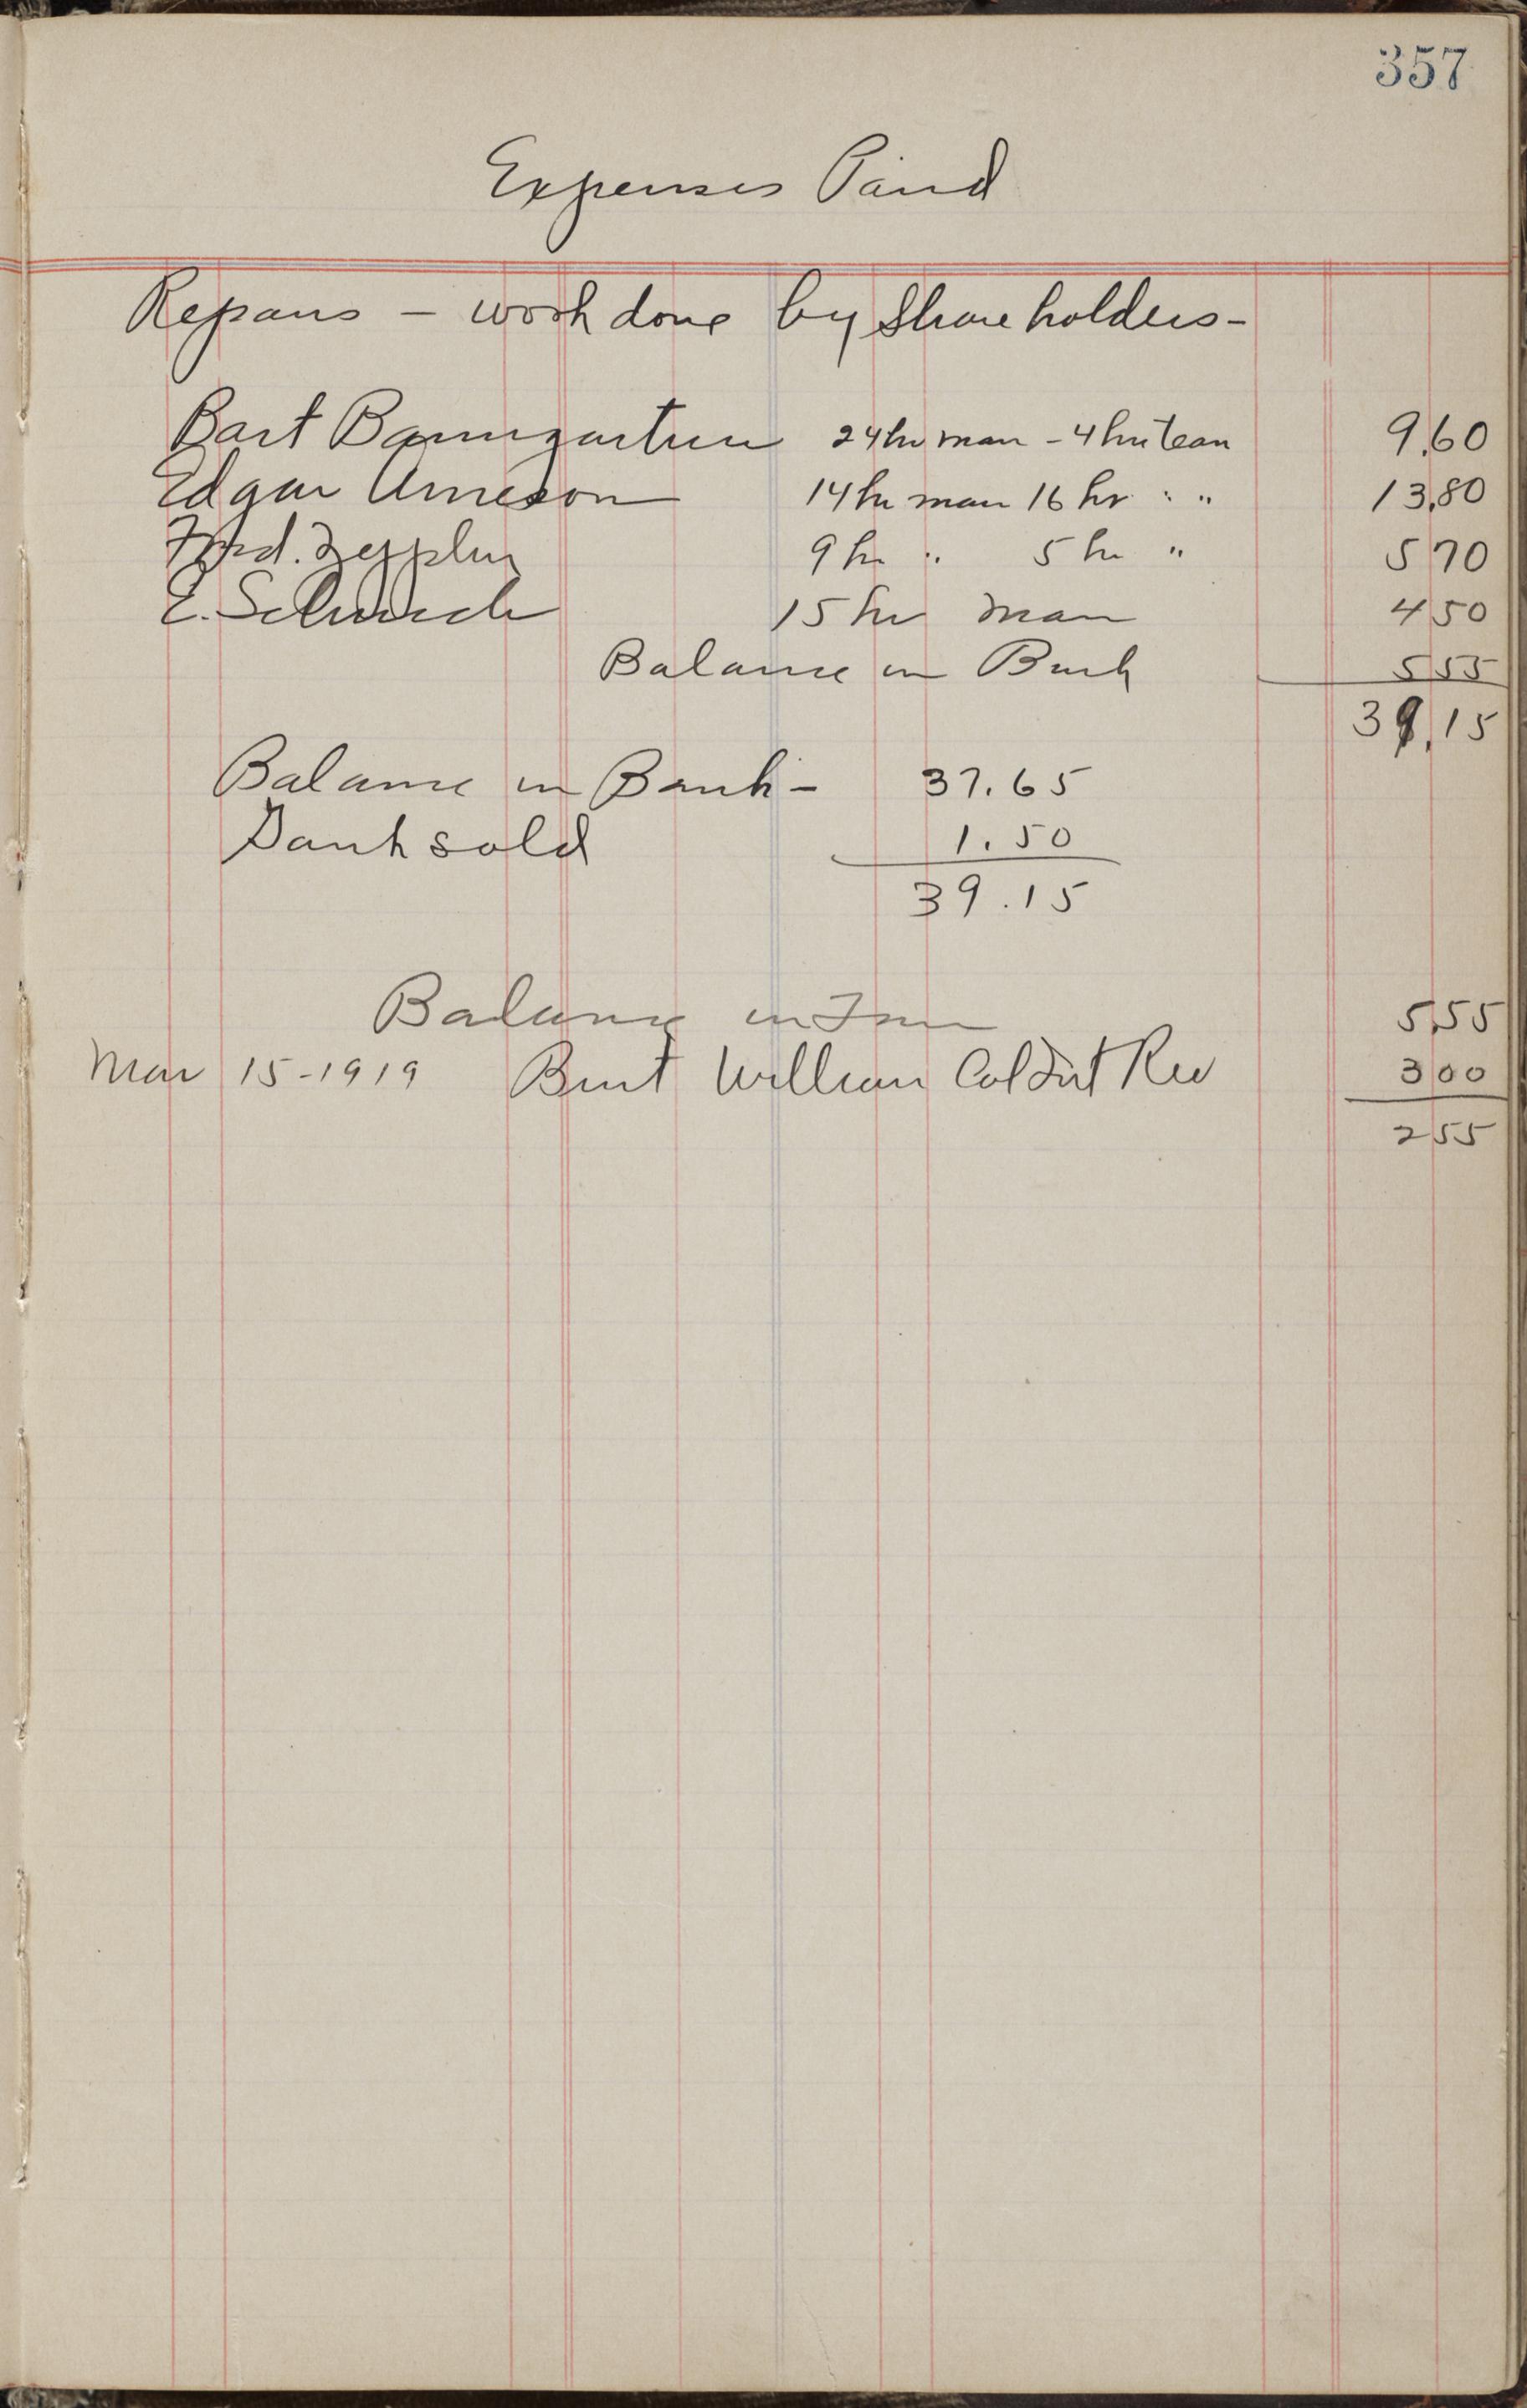 357
Expenses Paid
Repairs - work done by Share holders-
Bart Baumgartner 24 hr man - 4 hr team 9.60
Edgar Arneson 14 hr man 16 hr " " 13.80
Fred. Zepplin 9 hr " 5 hr " 5 70
E. 15 hr man 4 50
Balance in Bank 5 55
39.15
Balance in Bank - 37.65
sold 1.50
39.15
Balance in 5.55
Mar 15-1919 Burt William Col Dist Rev 3 00
2 55